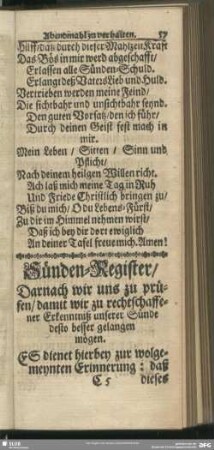 Abendmahl zu verhalten. 57
Hilff/ daß durch dieser Mahlzeit Krafft
Das Bös in mir werd abgeschafft/
Erlassen alle Sünden-Schuld.
Erlangt deß Vaters Lieb und Huld.
Vertrieben werden meine Feind/
Die sichtbahr und unsichtbahr seynd.
Den guten Vorsatz/ den ich führ/
Durch deinen Geist fest mach in
mir.
Mein Leben / Sitten / Sinn und
Pflicht/
Nach deinem heilgen Willen richt.
Ach laß mich meine Tag in Ruh
Und Friede Christlich bringen zu/
Biß du mich/ O du Lebens-Fürst/
Zu dir im Himmel nehmen wirst/
Daß ich bey dir dort ewiglich
An deiner Tafel freue mich. Amen!
Sünden-Register/
Darnach wir uns zu prü-
fen/ damit wir zu rechtschaffe-
ner Erkenntniß unserer Sünde
desto besser gelangen
mögen.
ES dienet hierbey zur wolge-
meynten Erinnerung : daß
C 5 dieses